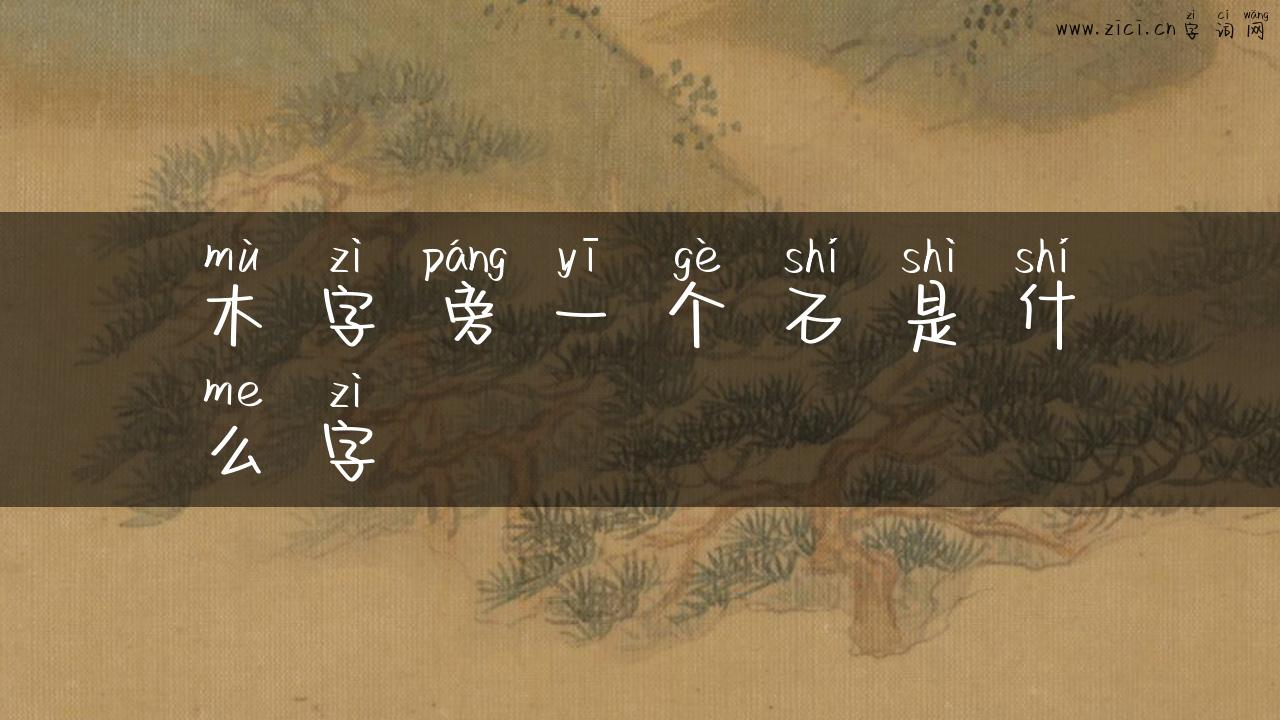 zì cí wǎng
www.zici.cn 字词网
mù zì páng yī gè shí shì shí
木字旁一个石是什
me zì
么字